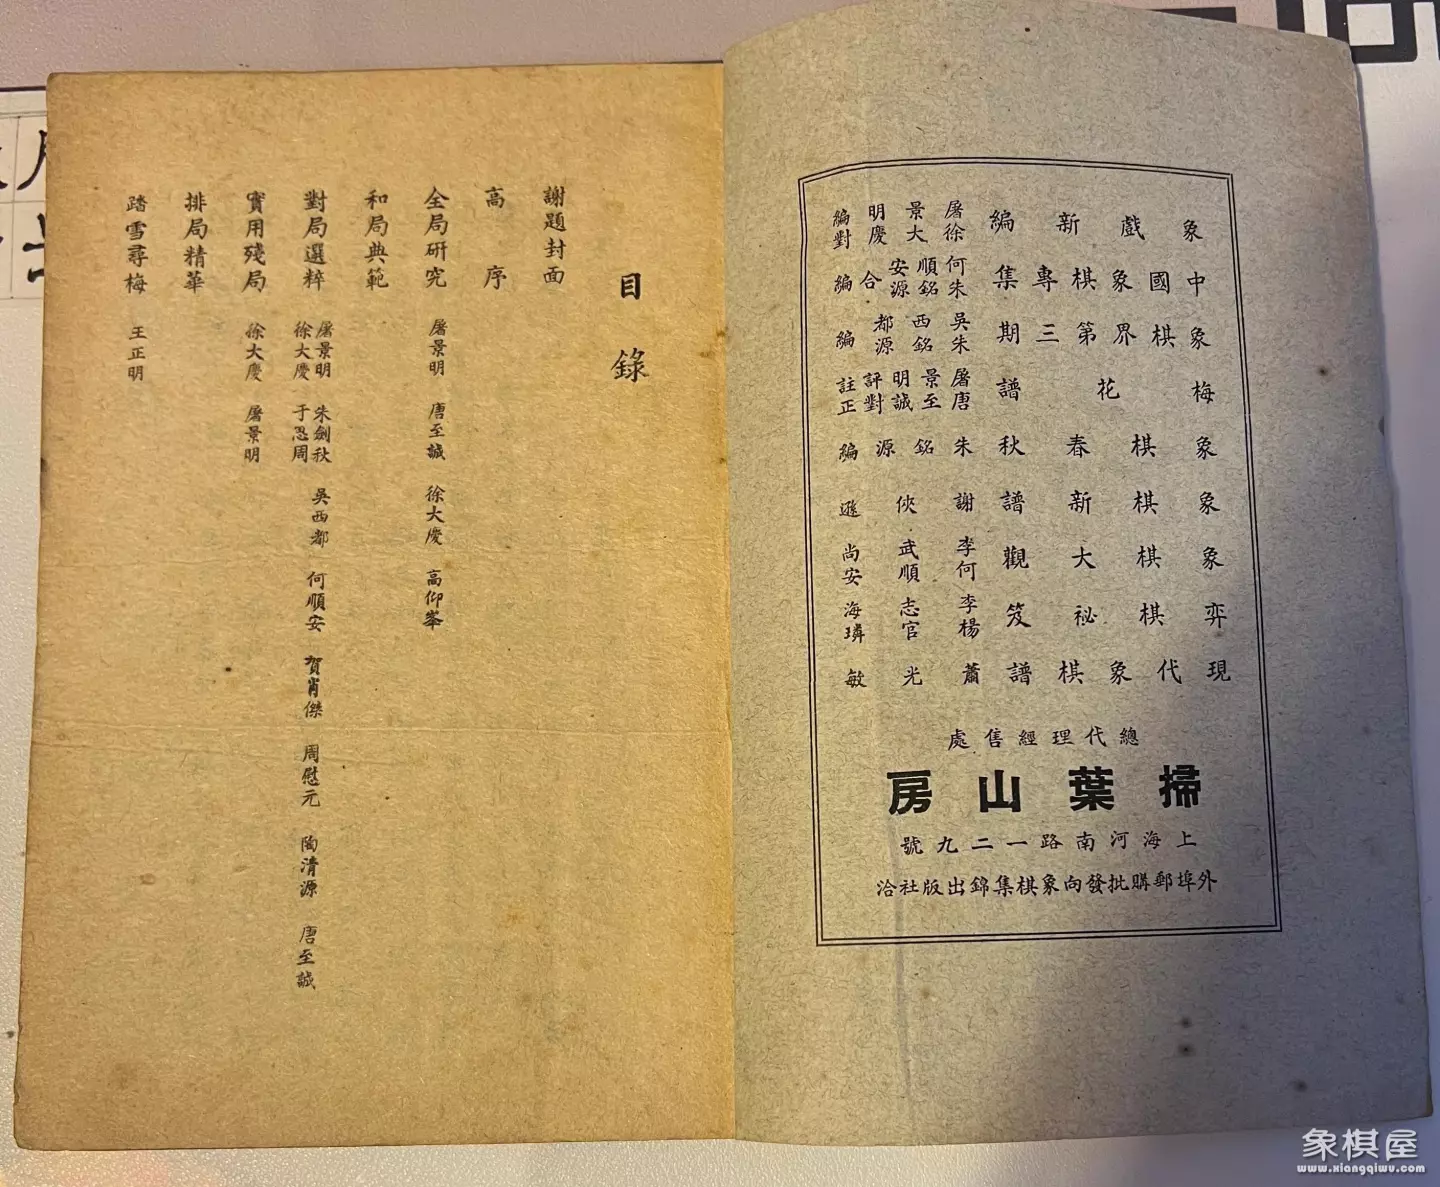 象戲新編 屠景明 徐大慶 編對
中國象棋專集 何順安 朱銘源 合編
象棋界第三期 吳西都 朱銘源 編
梅花譜 屠景明評註 唐至誠對正
象棋春秋 朱銘源編
象棋新譜 謝俠遜
象棋大觀 李武尚 何順安
弈棋祕笈 李志海 楊官璘
現代象棋譜 蕭光敏
總代理經售處
掃葉山房
上海河南路一二九號
外埠郵購批發向象棋集錦出版社洽
目錄
謝題封面
高序
全局研究 屠景明 唐至誠 徐大慶 高仰峯
和局典範
對局選粹 屠景明 徐大慶 朱劍秋 于忍周 吳西都 何順安 賀肖傑 周慰元 陶清源 唐至誠
實用殘局 徐大慶 屠景明
排局精華
踏雪尋梅 王正明
象棋屋
www.xiangqiwu.com